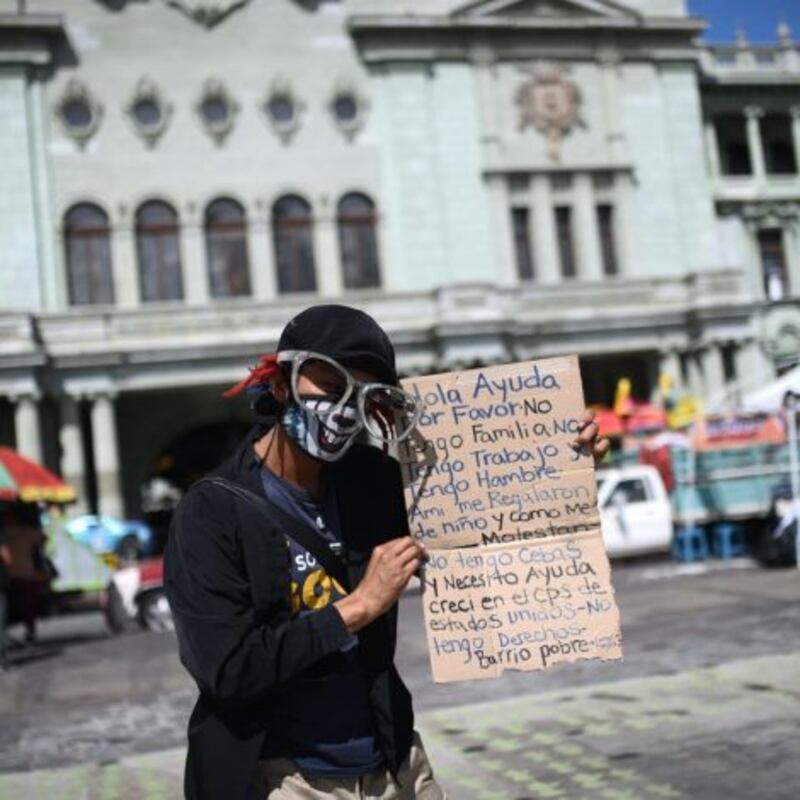 Hola Ayuda
Por Favor-No
Tengo Familia-No
Tengo Trabajo y
Tengo Hambre-
Ami me Regalaron
de niño y como Me
Molestan
No tengo Cebas
y Necesito Ayuda
creci en el CPS de
estados unidos-No
tengo Derechos-
Barrio pobre-
SO